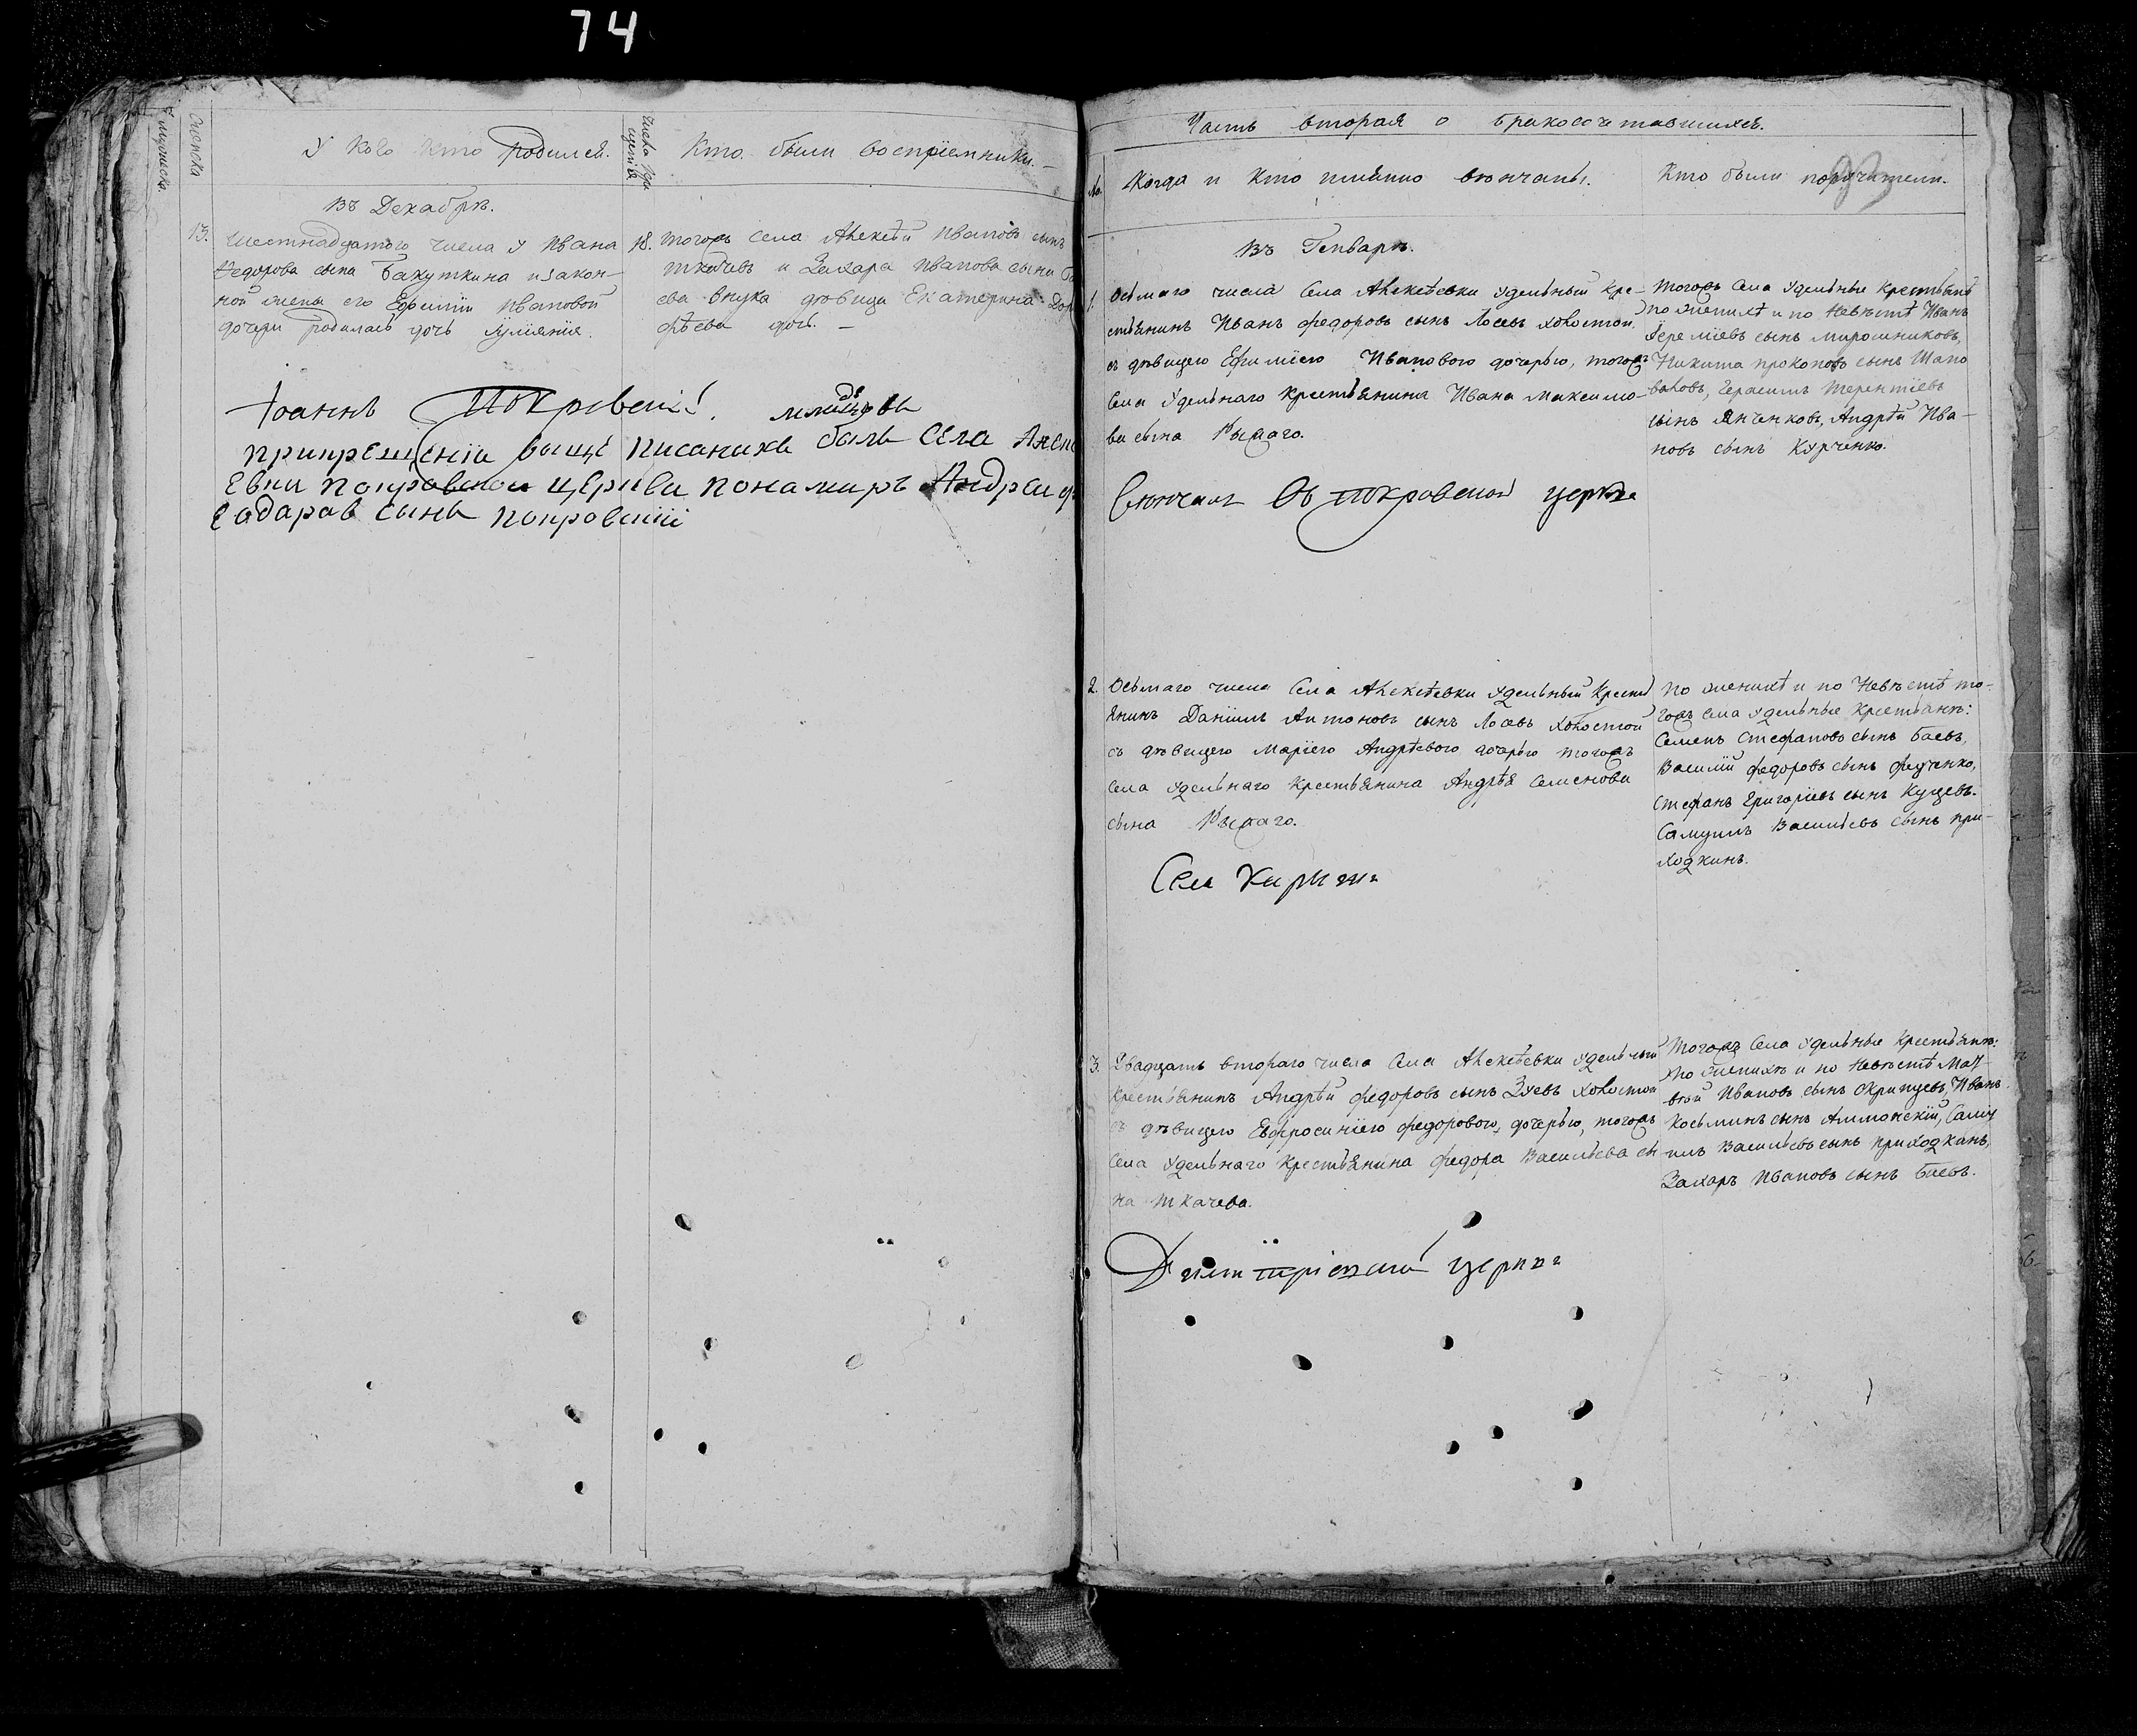 74
мужеска
женска
У кого кто родился.
число кре-
щенія.
Кто были воспріемники.
Въ Декабрѣ.
13. Шестнадцатаго числа у Ивана
Федорова сына Бакуткина и закон-
ной жены его Ефиміи Ивановой
дочери родилась дочь Іуліянія.
18. Тогожъ села Алексѣй Ивановъ сынъ
Ткачевъ и Захара Иванова сына
ева внука дѣвица Екатерина
фѣева дочь.
Іоаннъ Покровскій. младѣнцовъ
при крещеніи выще писаныхъ былъ села
Евки покровской церкви понамарь Андрей
сынъ покровский
Часть вторая о бракосочетавшихся.
№
Когда и кто имянно вѣнчаны.
Кто были поручители.
93
Въ Генварѣ.
1. Осьмаго числа села Алексѣевки удѣльный кре-
стьянинъ Иванъ Федоровъ сынъ Лосевъ холостой,
съ дѣвицею Ефиміею Ивановою дочерью, тогожъ
села удѣльнаго крестьянина Ивана Максимо-
ва сына Рыжаго.
Тогожъ села удѣльные крестьяне
по женихѣ и по невѣстѣ Иванъ
Еремѣевъ сынъ Мирошниковъ,
Никита Прокоповъ сынъ Шапо
валовъ, Герасимъ Терентіевъ
сынъ Янченковъ, Андрѣй Ива-
новъ сынъ Курченко.
Венчаны въ Покровской церкве
2. Осьмаго числа села Алексѣевки удѣльный крест
янинъ Даніилъ Антоновъ сынъ Лосевъ холостой
съ дѣвицею Маріею Андрѣевою дочерью тогожъ
села удѣльнаго крестьянина Андрѣя Семенова
сына Рыжаго.
По женихѣ и по невѣстѣ то-
гожъ села удѣльные крестьяне:
Семенъ Стефановъ сынъ Баевъ,
Василій Федоровъ сынъ Федченко,
Стефанъ Григоріевъ сынъ Куцевъ.
Самуилъ Васильевъ сынъ При-
ходкинъ.
Села
3. Двадцать втораго числа села Алексѣевки удѣльный
крестьянинъ Андрѣй Федоровъ сынъ Зуевъ холостой
съ дѣвицею Евфросиніею Федоровою дочерью, тогожъ
села удѣльнаго крестьянина Федора Васильева сы
на Ткачева.
Тогожъ села удѣльные крестьяне:
по женихѣ и по невѣстѣ Мат
вѣй Ивановъ сынъ Скрипцевъ, Иванъ
Косьминъ сынъ, Саму
илъ Васильевъ сынъ Приходкинъ,
Захаръ Ивановъ сынъ Баевъ.
Димитріевской церкве